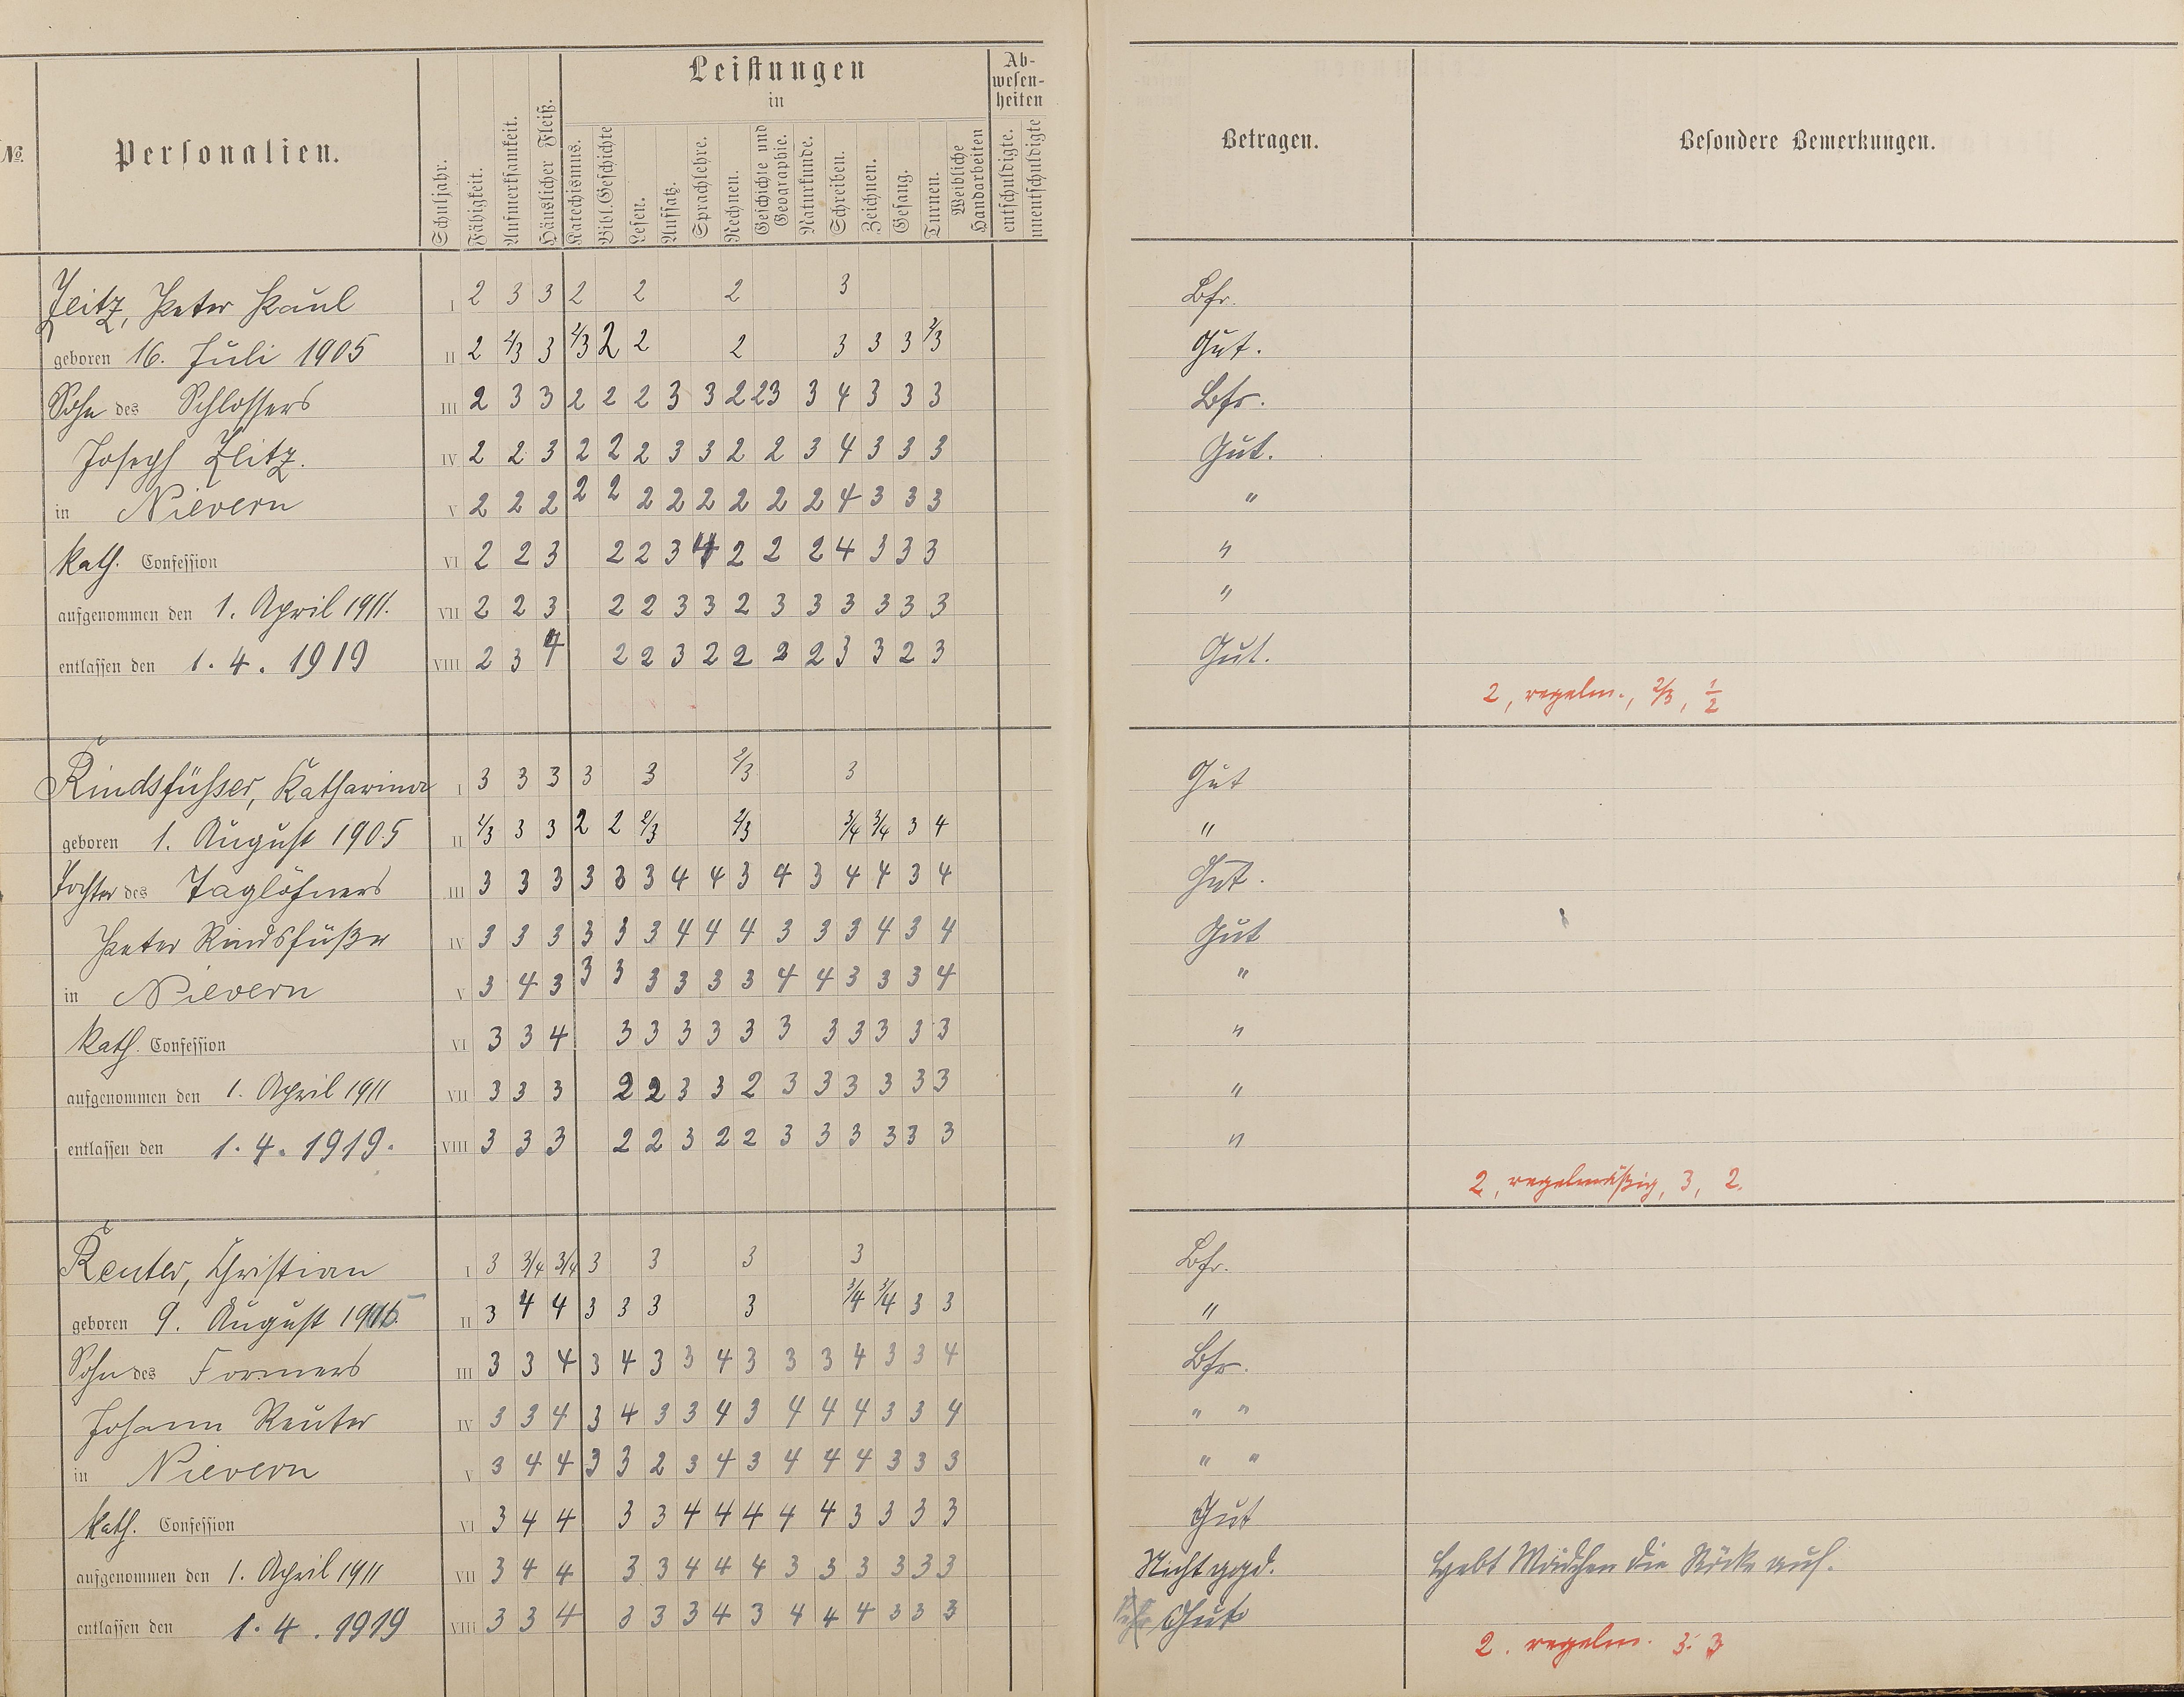 №.
Personalien.
Schuljahr.
Fähigkeit.
Aufmerksamkeit.
Häuslicher Fleiß.
Leistungen
in
Katechismus.
Bibl. Geschichte
Lesen.
Aufsatz.
Sprachlehre.
Rechnen.
Geschichte und Geographie.
Naturkunde.
Schreiben.
Zeichnen.
Gesang.
Turnen.
Weibliche Handarbeiten
Ab-
wesen-
heiten
entschuldigte.
unentschuldigte
Betragen.
Besondere Bemerkungen.
Zeitz, Peter Paul I 2 3 3 2 2 2 3 Bfr.
geboren 16. Juli 1905 II 2 2/3 3 2/3 2 2 2 3 3 3 2/3 Gut.
Sohn des Schlossers III 2 3 3 2 2 2 3 3 2 23 3 4 3 3 3 Bfr.
Joseph Zeitz. IV 2 2 3 2 2 2 3 3 2 2 3 4 3 3 3 Gut.
in Nievern V 2 2 2 2 2 2 2 2 2 2 2 4 3 3 3 "
kath. Confession VI 2 2 3 2 2 3 4 2 2 2 4 3 3 3 "
aufgenommen den 1. April 1911. VII 2 2 3 2 2 3 3 2 3 3 3 3 3 3 "
entlassen den 1. 4. 1919 VIII 2 3 4 2 2 3 2 2 2 2 3 3 2 3 Gut.
2, regelm., 2/3, 1/2
Rindsfüsser, Katharina I 3 3 3 3 3 2/3 3 Gut
geboren 1. August 1905 II 2/3 3 3 2 2 2/3 2/3 3/4 3/4 3 4 "
Tochter des Taglöhners III 3 3 3 3 3 3 4 4 3 4 3 4 4 3 4 Gut.
Peter Rindsfüßer IV 3 3 3 3 3 3 4 4 4 3 3 3 4 3 4 Gut
in Nievern V 3 4 3 3 3 3 3 3 3 4 4 3 3 3 4 "
kath. Confession VI 3 3 4 3 3 3 3 3 3 3 3 3 3 3 "
aufgenommen den 1. April 1911 VII 3 3 3 2 2 3 3 2 3 3 3 3 3 3 "
entlassen den 1. 4. 1919. VIII 3 3 3 2 2 3 2 2 3 3 3 3 3 3 "
2, regelmäßig, 3, 2.
Reuter, Christian I 3 3/4 3/4 3 3 3 3 Bfr.
geboren 9. August II 3 4 4 3 3 3 3 3/4 3/4 3 3 "
Sohn des Formers III 3 3 4 3 4 3 3 4 3 3 3 4 3 3 4 Bfr.
Johann Reuter IV 3 3 4 3 4 3 3 4 3 4 4 4 3 3 4 " "
in Nievern V 3 4 4 3 3 2 3 4 3 4 4 4 3 3 3 " "
kath. Confession VI 3 4 4 3 3 4 4 4 4 4 3 3 3 3 Gut
aufgenommen den 1. April 1911 VII 3 4 4 3 3 4 4 4 3 3 3 3 3 3 Nicht Hebt Mädchen die Röcke auf.
entlassen den 1. 4. 1919 VIII 3 3 4 3 3 3 4 3 4 4 4 3 3 3 Gut
2. regelm. 3. 3